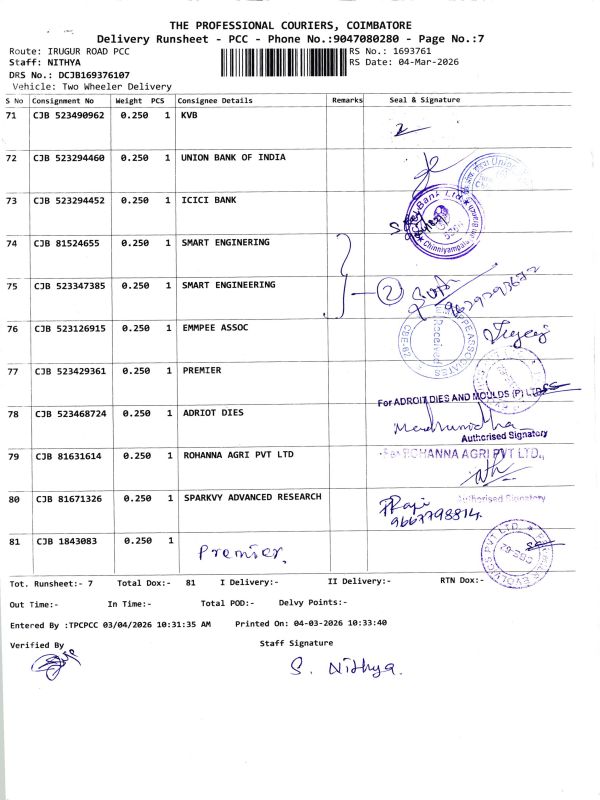 THE PROFESSIONAL COURIERS, COIMBATORE
Delivery Runsheet - PCC - Phone No.:9047080280 - Page No.:7
Route: IRUGUR ROAD PCC
RS No.: 1693761
Staff: NITHYA
RS Date: 04-Mar-2026
DRS No.: DCJB169376107
Vehicle: Two Wheeler Delivery
S No Consignment No Weight PCS Consignee Details Remarks Seal & Signature
71 CJB 523490962 0.250 1 KVB
72 CJB 523294460 0.250 1 UNION BANK OF INDIA
73 CJB 523294452 0.250 1 ICICI BANK
74 CJB 81524655 0.250 1 SMART ENGINERING
75 CJB 523347385 0.250 1 SMART ENGINEERING
2
76 CJB 523126915 0.250 1 EMMPEE ASSOC
77 CJB 523429361 0.250 1 PREMIER
For ADROIT DIES AND MOULDS (P) LTD
78 CJB 523468724 0.250 1 ADRIOT DIES
Authorised Signatory
79 CJB 81631614 0.250 1 ROHANNA AGRI PVT LTD
For ROHANNA AGRI PVT LTD.,
Authorised Signatory
80 CJB 81671326 0.250 1 SPARKVY ADVANCED RESEARCH
9667798814
81 CJB 1843083 0.250 1 Premier.
Tot. Runsheet:- 7 Total Dox:- 81 I Delivery:- II Delivery:- RTN Dox:-
Out Time:- In Time:- Total POD:- Delvy Points:-
Entered By :TPCPCC 03/04/2026 10:31:35 AM Printed On: 04-03-2026 10:33:40
Verified By Staff Signature
S. Nithya.